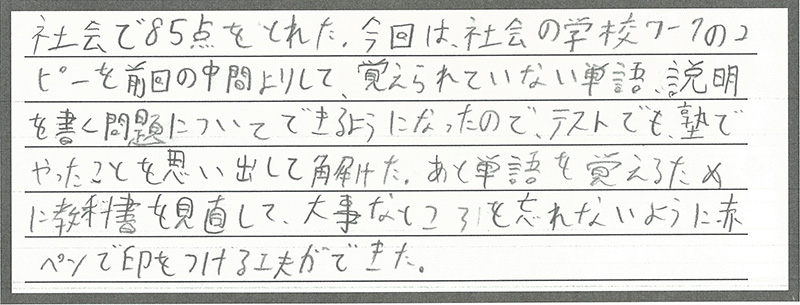 社会で85点をとれた。今回は、社会の学校ワークのコ
ピーを前回の中間よりして、覚えられていない単語、説明
を書く問題についてできるようになったので、テストでも、塾で
やったことを思い出して解けた。あと単語を覚えるため
に教科書を見直して、大事なところを忘れないように赤
ペンで印をつける工夫ができた。